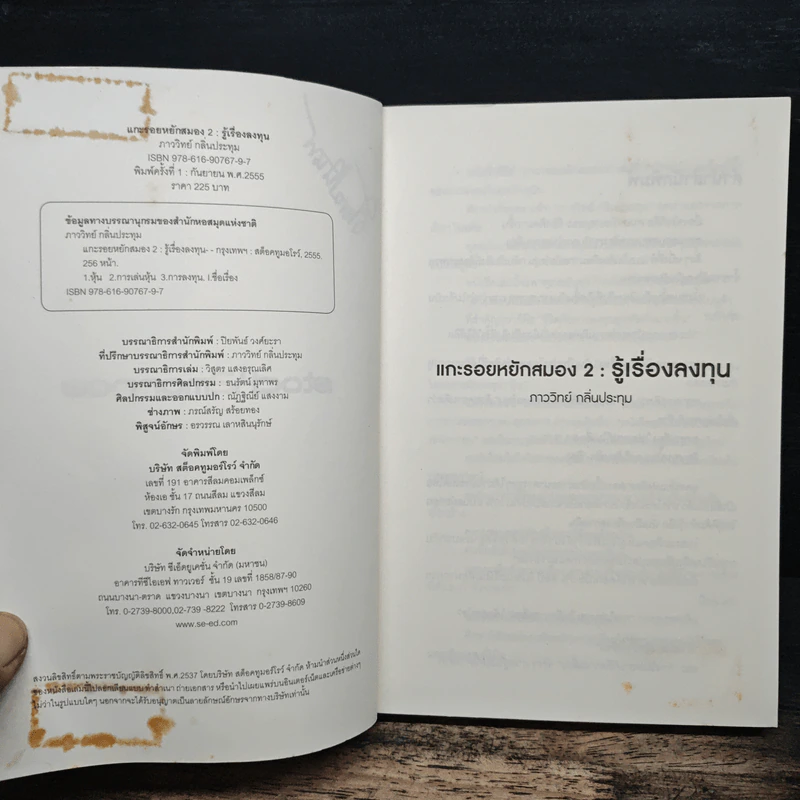 แกะรอยหยักสมอง 2 : รู้เรื่องลงทุน
ภาววิทย์ กลิ่นประทุม
ISBN 978-616-90767-9-7
พิมพ์ครั้งที่ 1 : กันยายน พ.ศ.2555
ราคา 225 บาท
ข้อมูลทางบรรณานุกรมของสำนักหอสมุดแห่งชาติ
ภาววิทย์ กลิ่นประทุม
แกะรอยหยักสมอง 2 : รู้เรื่องลงทุน- - กรุงเทพฯ : สต็อคทูมอโรว์, 2555.
256 หน้า.
1.หุ้น 2.การเล่นหุ้น 3.การลงทุน. I.ชื่อเรื่อง
ISBN 978-616-90767-9-7
บรรณาธิการสำนักพิมพ์ : ปิยพันธ์ วงศ์ยะรา
ที่ปรึกษาบรรณาธิการสำนักพิมพ์ : ภาววิทย์ กลิ่นประทุม
บรรณาธิการเล่ม : วิสูตร แสงอรุณเลิศ
บรรณาธิการศิลปกรรม : ธนรัตน์ มุทาพร
ศิลปกรรมและออกแบบปก : ณัฏฐิณีย์ แสงงาม
ช่างภาพ : ภรณ์สรัญ สร้อยทอง
พิสูจน์อักษร : อรวรรณ เลาหสินนุรักษ์
จัดพิมพ์โดย
บริษัท สต็อคทูมอร์โรว์ จำกัด
เลขที่ 191 อาคารสีลมคอมเพล็กซ์
ห้องเอ ชั้น 17 ถนนสีลม แขวงสีลม
เขตบางรัก กรุงเทพมหานคร 10500
โทร. 02-632-0645 โทรสาร 02-632-0646
จัดจำหน่ายโดย
บริษัท ซีเอ็ดยูเคชั่น จำกัด (มหาชน)
อาคารทีซีไอเอฟ ทาวเวอร์ ชั้น 19 เลขที่ 1858/87-90
ถนนบางนา-ตราด แขวงบางนา เขตบางนา กรุงเทพฯ 10260
โทร. 0-2739-8000,02-739 -8222 โทรสาร 0-2739-8609
www.se-ed.com
สงวนลิขสิทธิ์ตามพระราชบัญญัติลิขสิทธิ์ พ.ศ.2537 โดยบริษัท สต็อคทูมอร์โรว์ จำกัด ห้ามนำส่วนหนึ่งส่วนใด
ของหนังสือเล่มนี้ไปลอกเลียนแบบ ทำสำเนา ถ่ายเอกสาร หรือนำไปเผยแพร่บนอินเตอร์เน็ตและเครือข่ายต่างๆ
ไม่ว่าในรูปแบบใดๆ นอกจากจะได้รับอนุญาตเป็นลายลักษณ์อักษรจากทางบริษัทเท่านั้น
แกะรอยหยักสมอง 2 : รู้เรื่องลงทุน
ภาววิทย์ กลิ่นประทุม